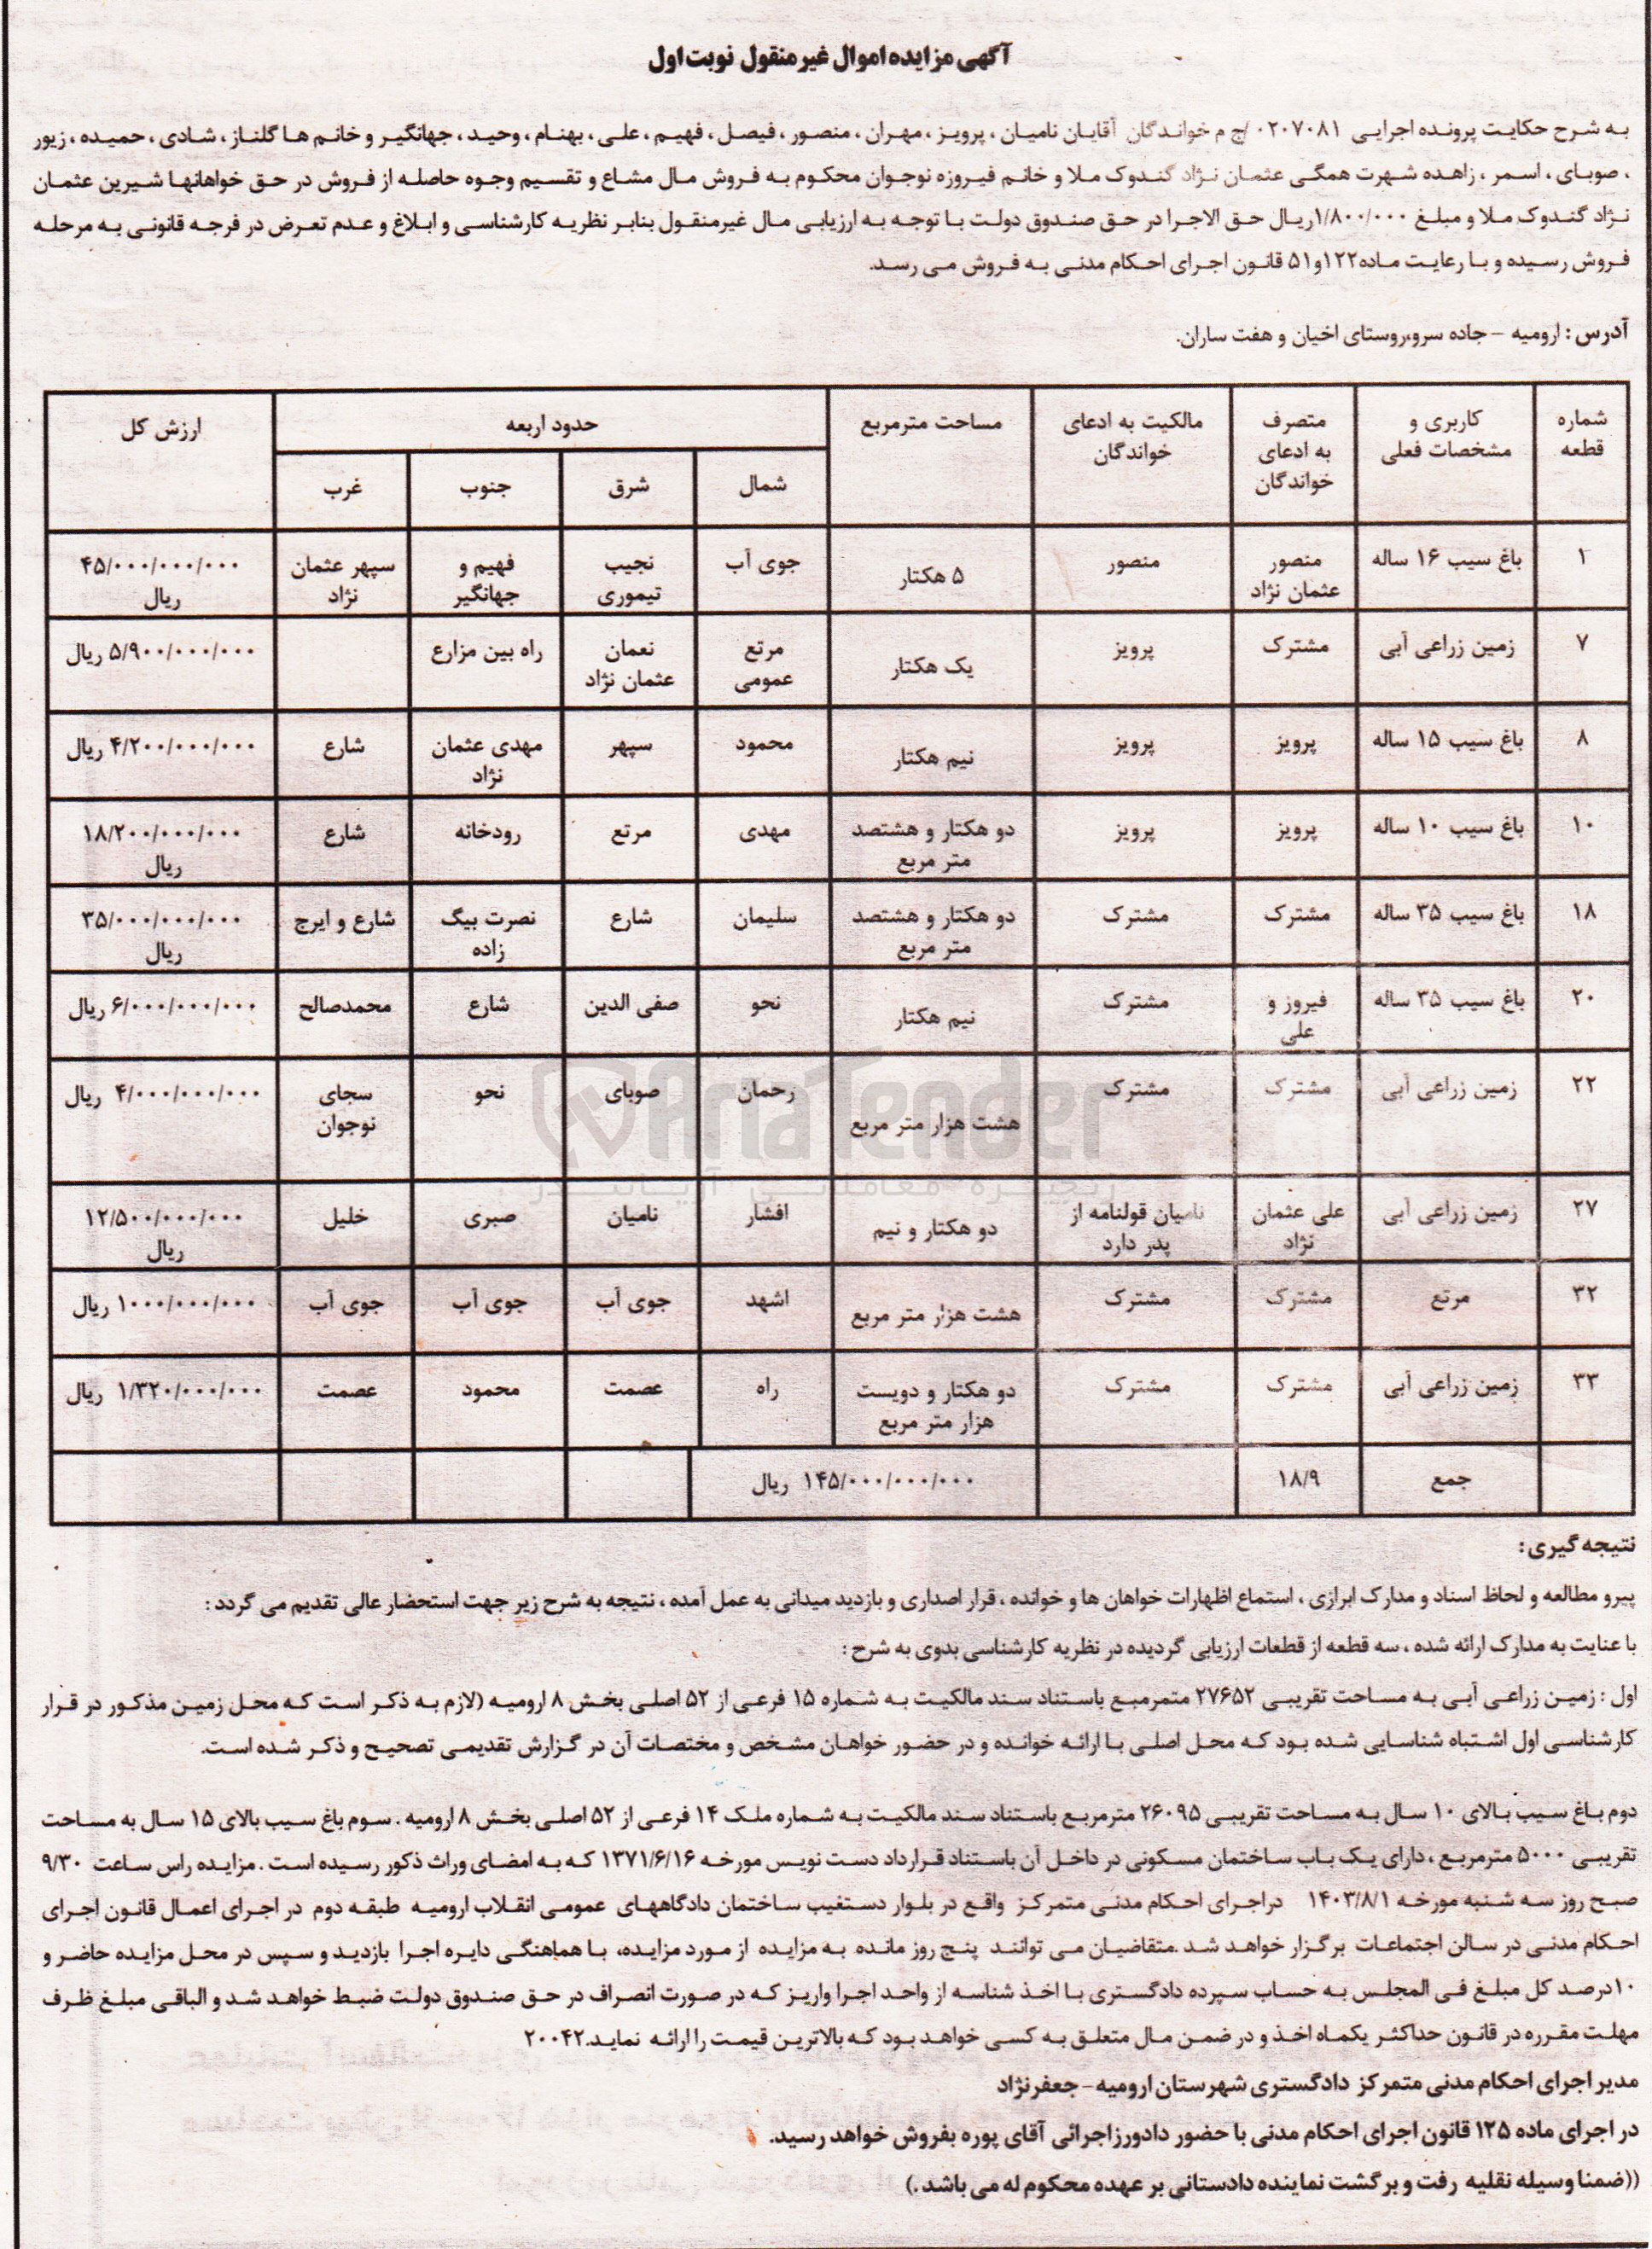 آگهی مزایده اموال غیر منقول نوبت اول
به شرح حکایت پرونده اجرایی ۰۲۰۷۰۸۱/ج م خواندگان آقایان نامیان ، پرویز ، مهران ، منصور ، فیصل ، فهیم ، علی ، بهنام ، وحید ، جهانگیر و خانم ها گلناز ، شادی ، حمیده ، زیور
، صوبای ، اسمر ، زاهده شهرت همگی عثمان نژاد گندوک ملا و خانم فیروزه نوجوان محکوم به فروش مال مشاع و تقسیم وجوه حاصله از فروش در حق خواهانها شیرین عثمان
نژاد گندوک ملا و مبلغ ۱/۸۰۰/۰۰۰ریال حق الاجرا در حق صندوق دولت با توجه به ارزیابی مال غیرمنقول بنابر نظریه کارشناسی و ابلاغ و عدم تعرض در فرجه قانونی به مرحله
فروش رسیده و با رعایت ماده۱۲۲و۵۱ قانون اجرای احکام مدنی به فروش می رسد.
آدرس : ارومیه – جاده سرو،روستای اخیان و هفت ساران.
شماره قطعه کاربری و مشخصات فعلی متصرف به ادعای خواندگان مالکیت به ادعای خواندگان مساحت مترمربع حدود اربعه ارزش کل
شمال شرق جنوب غرب
۱ باغ سیب ۱۶ ساله منصور عثمان نژاد منصور ۵ هکتار جوی آب نجیب تیموری فهیم و جهانگیر سپهر عثمان نژاد ۴۵/۰۰۰/۰۰۰/۰۰۰ ریال
۷ زمین زراعی آبی مشترک پرویز یک هکتار مرتع عمومی نعمان عثمان نژاد راه بین مزارع ۵/۹۰۰/۰۰۰/۰۰۰ ریال
۸ باغ سیب ۱۵ ساله پرویز پرویز نیم هکتار محمود سپهر مهدی عثمان نژاد شارع ۴/۲۰۰/۰۰۰/۰۰۰ ریال
۱۰ باغ سیب ۱۰ ساله پرویز پرویز دو هکتار و هشتصد متر مربع مهدی مرتع رودخانه شارع ۱۸/۲۰۰/۰۰۰/۰۰۰ ریال
۱۸ باغ سیب ۳۵ ساله مشترک مشترک دو هکتار و هشتصد متر مربع سلیمان شارع نصرت بیگ زاده شارع و ایرج ۳۵/۰۰۰/۰۰۰/۰۰۰ ریال
۲۰ باغ سیب ۳۵ ساله فیروز و علی مشترک نیم هکتار نحو صفی الدین شارع محمدصالح ۶/۰۰۰/۰۰۰/۰۰۰ ریال
۲۲ زمین زراعی آبی مشترک مشترک هشت هزار متر مربع رحمان صوبای نحو سجای نوجوان ۴/۰۰۰/۰۰۰/۰۰۰ ریال
AriaTender
زنجیره معاملاتی آریاتندر
۲۷ زمین زراعی آبی علی عثمان نژاد نامیان قولنامه از پدر دارد دو هکتار و نیم افشار نامیان صبری خلیل ۱۲/۵۰۰/۰۰۰/۰۰۰ ریال
۳۲ مرتع مشترک مشترک هشت هزار متر مربع اشهد جوی آب جوی آب جوی آب ۱۰۰۰/۰۰۰/۰۰۰ ریال
۳۳ زمین زراعی آبی مشترک مشترک دو هکتار و دویست هزار متر مربع راه عصمت محمود عصمت ۱/۳۲۰/۰۰۰/۰۰۰ ریال
جمع ۱۸/۹ ۱۴۵/۰۰۰/۰۰۰/۰۰۰ ریال
نتیجه گیری :
پیرو مطالعه و لحاظ اسناد و مدارک ابرازی ، استماع اظهارات خواهان ها و خوانده ، قرار اصداری و بازدید میدانی به عمل آمده ، نتیجه به شرح زیر جهت استحضار عالی تقدیم می گردد :
با عنایت به مدارک ارائه شده ، سه قطعه از قطعات ارزیابی گردیده در نظریه کارشناسی بدوی به شرح :
اول : زمین زراعی آبی به مساحت تقریبی ۲۷۶۵۲ مترمربع باستناد سند مالکیت به شماره ۱۵ فرعی از ۵۲ اصلی بخش ۸ ارومیه (لازم به ذکر است که محل زمین مذکور در قرار
کارشناسی اول اشتباه شناسایی شده بود که محل اصلی با ارائه خوانده و در حضور خواهان مشخص و مختصات آن در گزارش تقدیمی تصحیح و ذکر شده است.
دوم باغ سیب بالای ۱۰ سال به مساحت تقریبی ۲۶۰۹۵ مترمربع باستناد سند مالکیت به شماره ملک ۱۴ فرعی از ۵۲ اصلی بخش ۸ ارومیه . سوم باغ سیب بالای ۱۵ سال به مساحت
تقریبی ۵۰۰۰ مترمربع ، دارای یک باب ساختمان مسکونی در داخل آن باستناد قرارداد دست نویس مورخه ۱۳۷۱/۶/۱۶ که به امضای وراث ذکور رسیده است . مزایده راس ساعت ۹/۳۰
صبح روز سه شنبه مورخه ۱۴۰۳/۸/۱ دراجرای احکام مدنی متمرکز واقع در بلوار دستغیب ساختمان دادگاههای عمومی انقلاب ارومیه طبقه دوم در اجرای اعمال قانون اجرای
احکام مدنی در سالن اجتماعات برگزار خواهد شد .متقاضیان می توانند پنج روز مانده به مزایده از مورد مزایده، با هماهنگی دایره اجرا بازدید و سپس در محل مزایده حاضر و
۱۰درصد کل مبلغ فی المجلس به حساب سپرده دادگستری با اخذ شناسه از واحد اجرا واریز که در صورت انصراف در حق صندوق دولت ضبط خواهد شد و الباقی مبلغ ظرف
مهلت مقرره در قانون حداکثر یکماه اخذ و در ضمن مال متعلق به کسی خواهد بود که بالاترین قیمت را ارائه نماید.۲۰۰۴۲
مدیر اجرای احکام مدنی متمرکز دادگستری شهرستان ارومیه – جعفرنژاد
در اجرای ماده ۱۲۵ قانون اجرای احکام مدنی با حضور دادورزاجرائی آقای پوره بفروش خواهد رسید.
((ضمنا وسیله نقلیه رفت و برگشت نماینده دادستانی بر عهده محکوم له می باشد .)